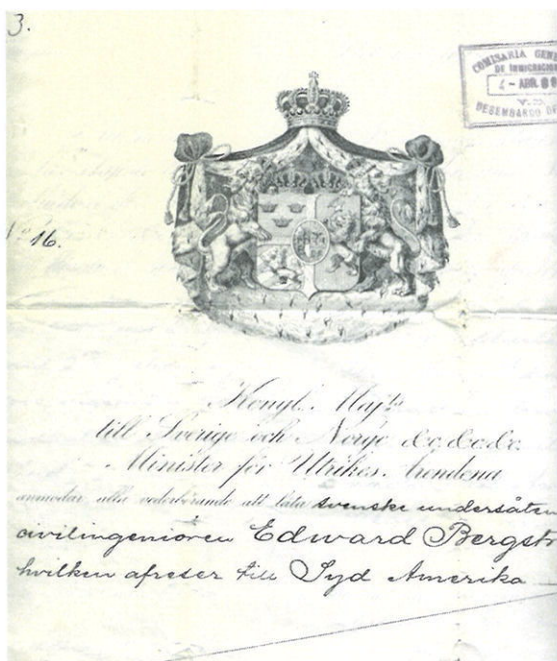 3.
COMISARIA GENE
DE INMIGRACION
4 - ABR. 
DESEMBARCO DE
No 16.
Kongl. Maj:ts
till Sverige och Norge &c. &c. &c.
Minister för Utrikes Ärendena
anmodar alla vederbörande att låta svenske undersåten
civilingeniören Edward Bergstr
hvilken afreser till Syd Amerika